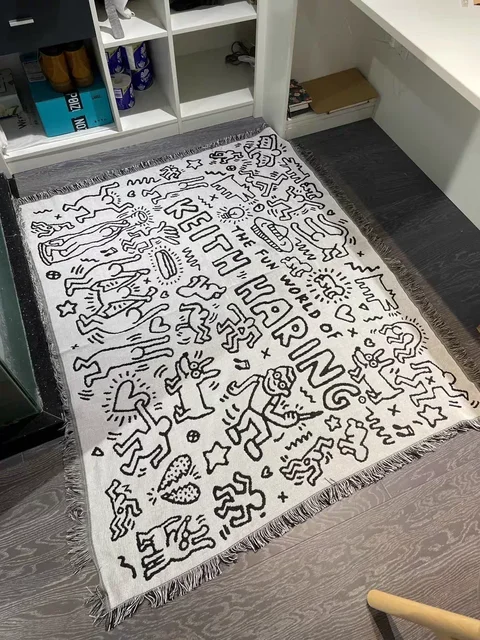 KEITH
THE FUN
WORLD OF
HARING